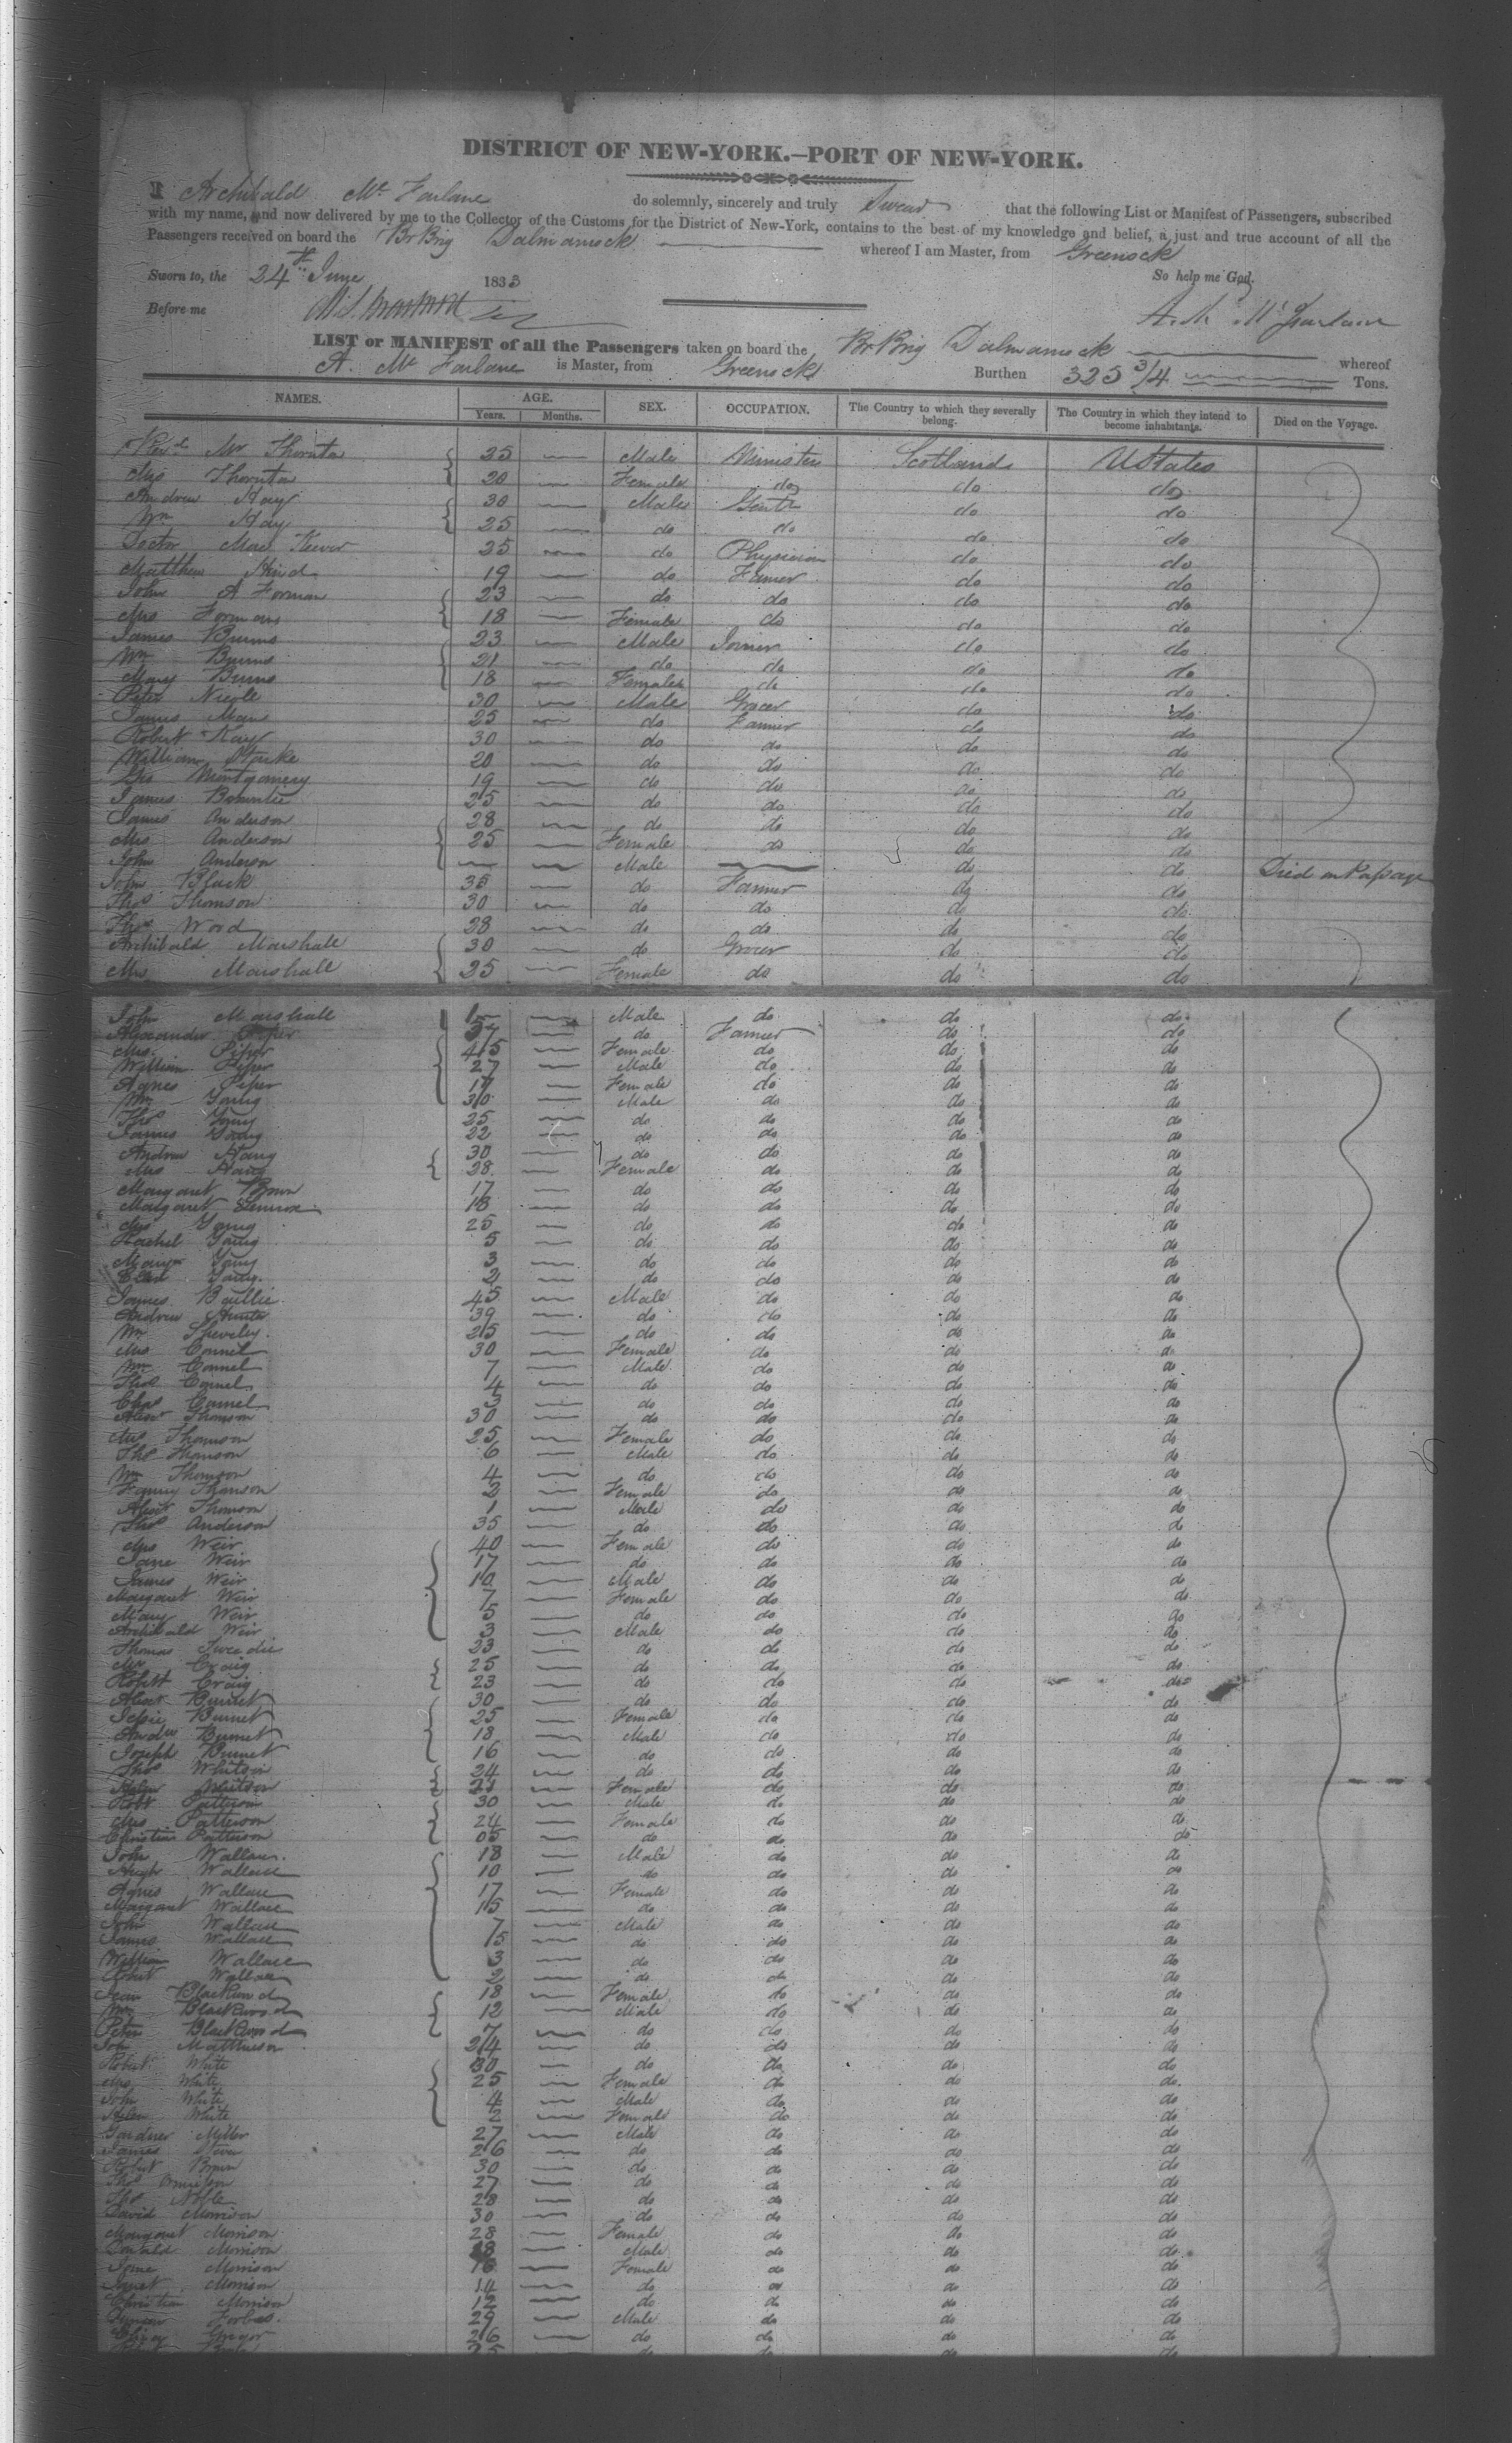 DISTRICT OF NEW-YORK.—PORT OF NEW-YORK.
I Archibald Mc Farlane do solemnly, sincerely and truly Swear that the following List or Manifest of Passengers, subscribed
with my name, and now delivered by me to the Collector of the Customs for the District of New-York, contains to the best of my knowledge and belief, a just and true account of all the
Passengers received on board the Br Brig Dalmarnock whereof I am Master, from Greenock
Sworn to, the 24th June 1833 So help me God.
Before me A. Mc Farlane
LIST or MANIFEST of all the Passengers taken on board the Br Brig Dalmarnock whereof
A. Mc Farlane is Master, from Greenock Burthen 325 3/4 Tons.
NAMES. AGE. SEX. OCCUPATION. The Country to which they severally belong. The Country in which they intend to become inhabitants. Died on the Voyage.
Years. Months.
Revd Mr Thornton 25 Male Minister Scotland U States
Mrs Thornton 20 Female do do do
Andrew Hay 30 Male Gent do do
Wm Hay 25 do do do do
Doctor Mac 25 do Physician do do
Matthew Hind 19 do Farmer do do
John A Forman 23 do do do do
Mrs Forman 18 Female do do do
James Burns 23 Male Joiner do do
Wm Burns 21 do do do do
Mary Burns 18 Female do do do
Peter Nicole 30 Male Grocer do do
James Marr 25 do Farmer do do
Robert Kay 30 do do do do
William 20 do do do do
Geo Montgomery 19 do do do do
James Brownlie 25 do do do do
James Anderson 28 do do do do
Mrs Anderson 25 Female do do do
John Anderson Male do do Died on Passage
John Black 35 do Farmer do do
Thos Thomson 30 do do do do
Thos Word 28 do do do do
Archibald Marshall 30 do Grocer do do
Mrs Marshall 25 Female do do do
John Marshall Male do do do
Alexander Piper 57 do Farmer do do
Mrs Piper 45 Female do do do
William Piper 27 Male do do do
Agnes Piper 17 Female do do do
Wm Young 30 Male do do do
Thos Young 25 do do do do
James Young 22 do do do do
Andrew Haug 30 do do do do
Mrs Haug 28 Female do do do
Margaret Brown 17 do do do do
Margaret Lennox 18 do do do do
Mrs Young 25 do do do do
Rachel Young 5 do do do do
Young 3 do do do do
Young 2 do do do do
James Baillie 45 Male do do do
Andrew Hunter 39 do do do do
Wm 25 do do do do
Mrs Connel 30 Female do do do
Wm Connel 7 Male do do do
Thos Connel 4 do do do do
Chas Connel 3 do do do do
Alexr Thomson 30 do do do do
Mrs Thomson 25 Female do do do
Thos Thomson 6 Male do do do
Wm Thomson 4 do do do do
Fanny Thomson 2 Female do do do
Alexr Thomson 1 Male do do do
Thos Anderson 35 do do do do
Mrs Weir 40 Female do do do
Jane Weir 17 do do do do
James Weir 10 Male do do do
Margaret Weir 7 Female do do do
Mary Weir 5 do do do do
Archibald Weir 3 Male do do do
Thomas Tweedie 23 do do do do
Craig 25 do do do do
Robt Craig 23 do do do do
Alexr Burnet 30 do do do do
Jessie Burnet 25 Female do do do
Andw Burnet 18 Male do do do
Joseph Burnet 16 do do do do
Thos Whitson 24 do do do do
Helen Whitson Female do do do
Robt Patterson 30 Male do do do
Mrs Patterson 24 Female do do do
Christian Patterson 05 do do do do
John Wallace 18 Male do do do
Hugh Wallace 10 do do do do
Agnes Wallace 17 Female do do do
Margaret Wallace 15 do do do do
John Wallace 7 Male do do do
James Wallace do do do do
William Wallace 3 do do do do
Robert Wallace 2 do do do do
Jean Blackwood 18 Female do do do
Wm Blackwood 12 Male do do do
Peter Blackwood 7 do do do do
Jon Matthieson 24 do do do do
Robert White 30 do do do do
Mrs White 25 Female do do do
John White 4 Male do do do
Helen White 2 Female do do do
Gardner Miller 27 Male do do do
James Steven 26 do do do do
Robert Brown 30 do do do do
Thos 27 do do do do
Thos Noble 28 do do do do
David Morrison 30 do do do do
Margaret Morrison 28 Female do do do
Donald Morrison Male do do do
Jane Morrison 16 Female do do do
Janet Morrison 14 do do do do
Christian Morrison 12 do do do do
Duncan Forbes 29 Male do do do
Gregor 26 do do do do
25 do do do do